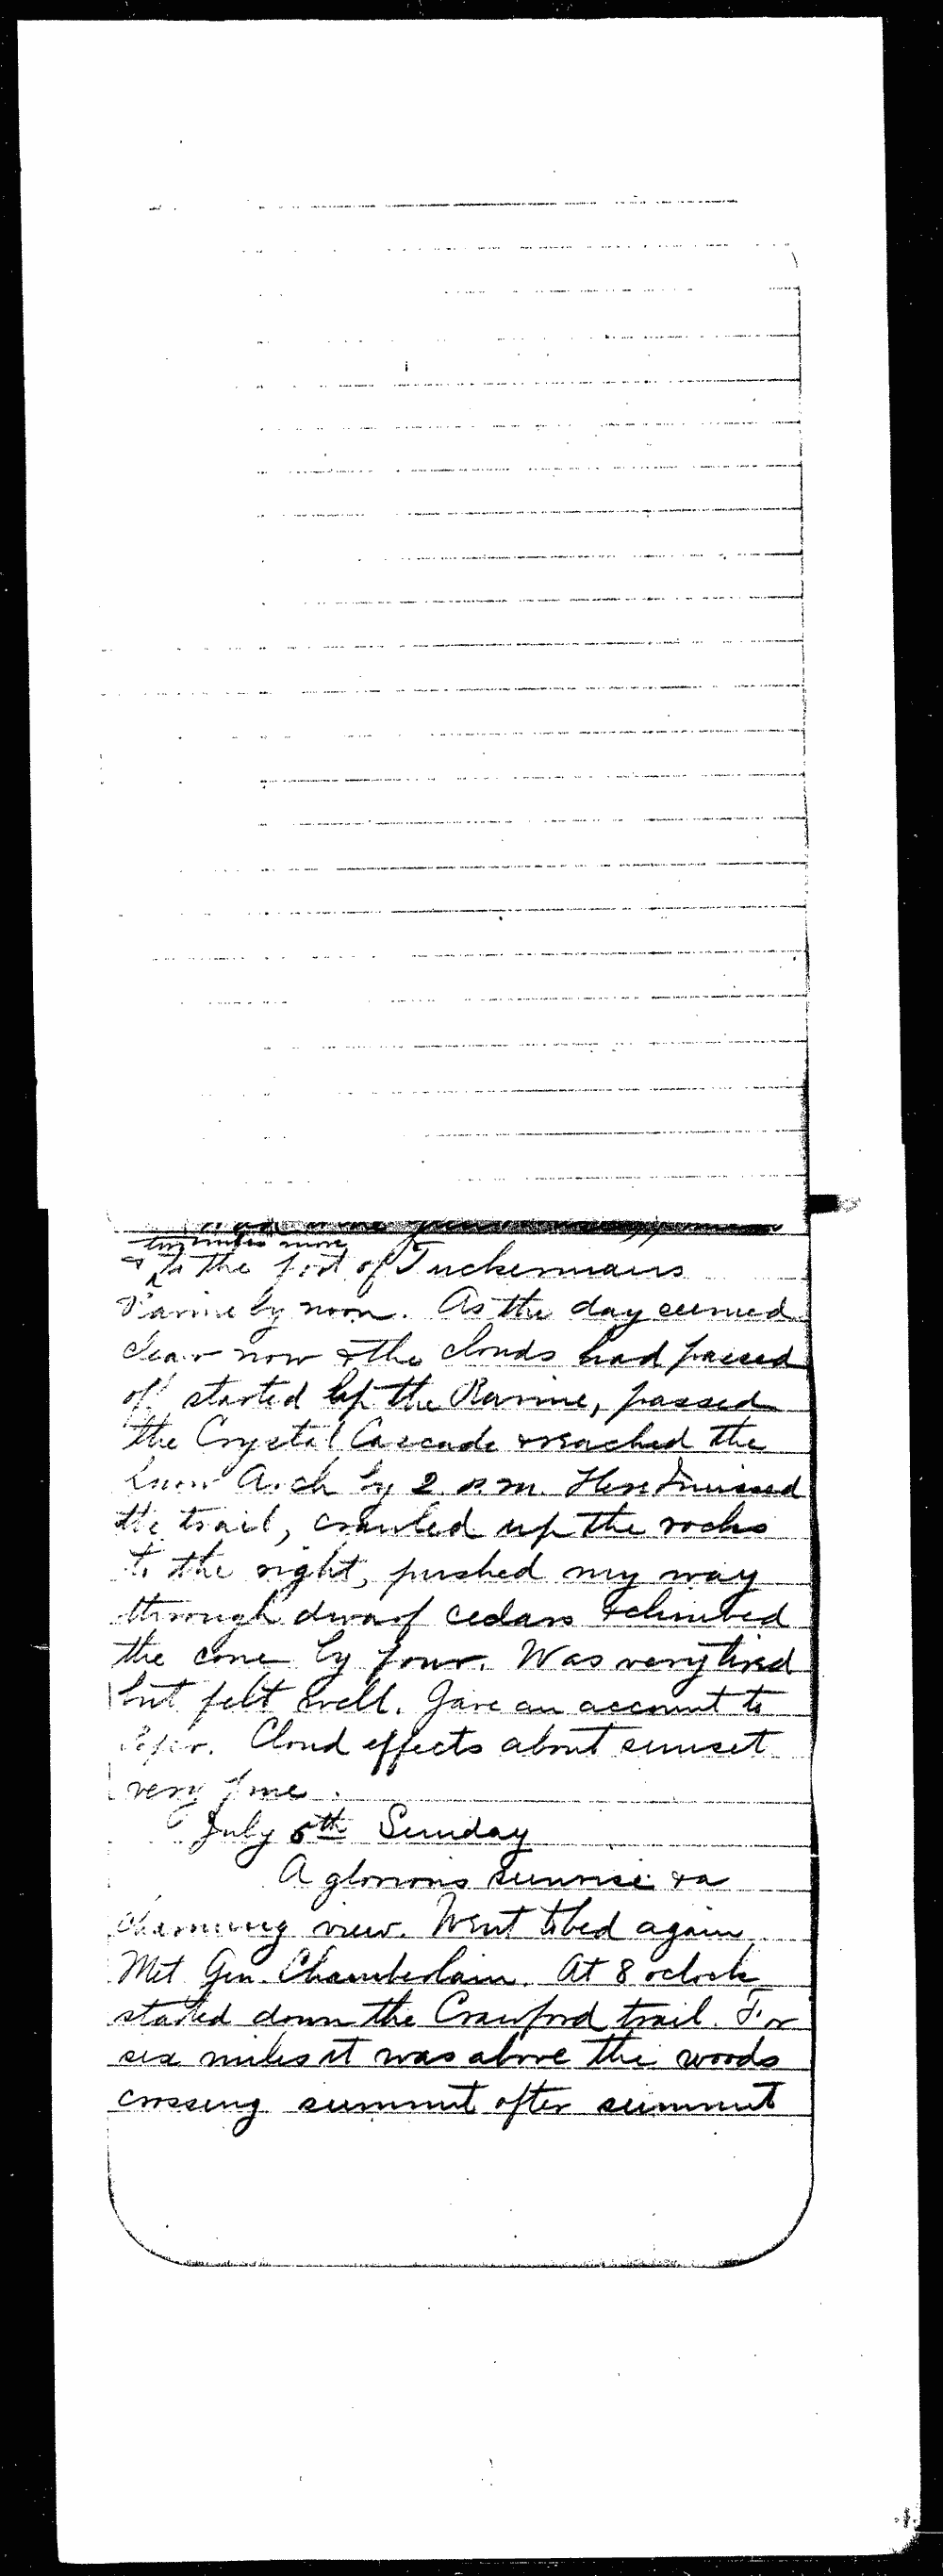 ten miles more
& to the foot of Tuckermans
Ravine by noon. As the day seemed
clear now & the clouds had passed
off started up the Ravine, passed
the Crystal Cascade & reached the
Snow Arch by 2 P.M. Here I missed
the trail, crawled up the rocks
to the right, pushed my way
through dwarf cedars & climbed
the cone by four. Was very tired
but felt well. Gave an account to
Cloud effects about sunset
very fine.
July 5th Sunday
A glorious sunrise & a
charming view. Went to bed again.
Met Gen. Chamberlain. At 8 oclock
started down the Crawford trail. For
six miles it was above the woods
crossing summit after summit